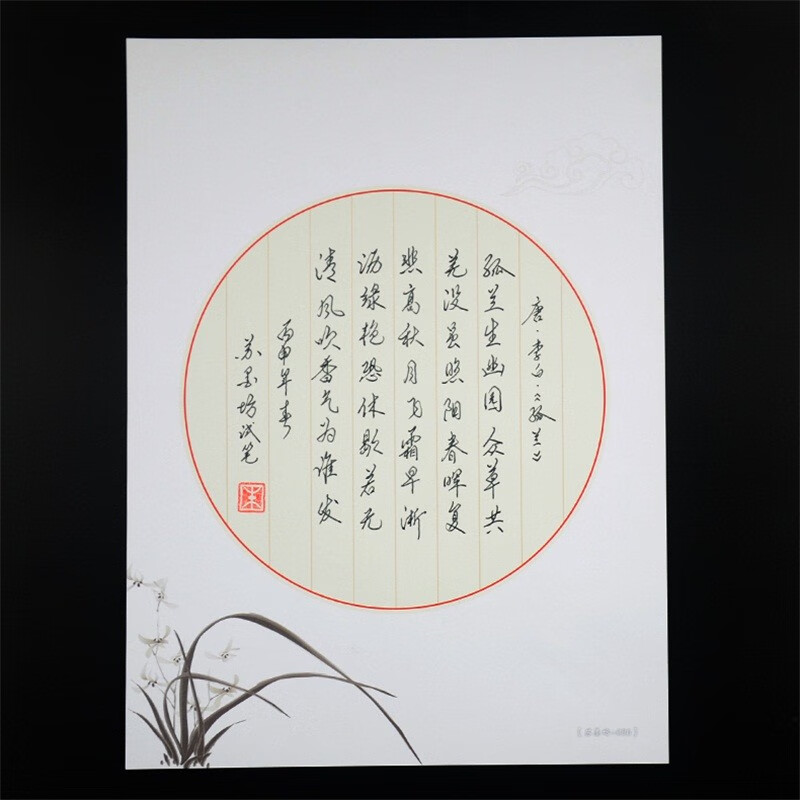 唐·李白·《孤兰》
孤兰生幽园众草共
芜没虽照阳春晖复
悲高秋月飞霜早淅
沥绿艳恐休歇若无
清风吹香气为谁发
丙申年春
苏墨坊试笔